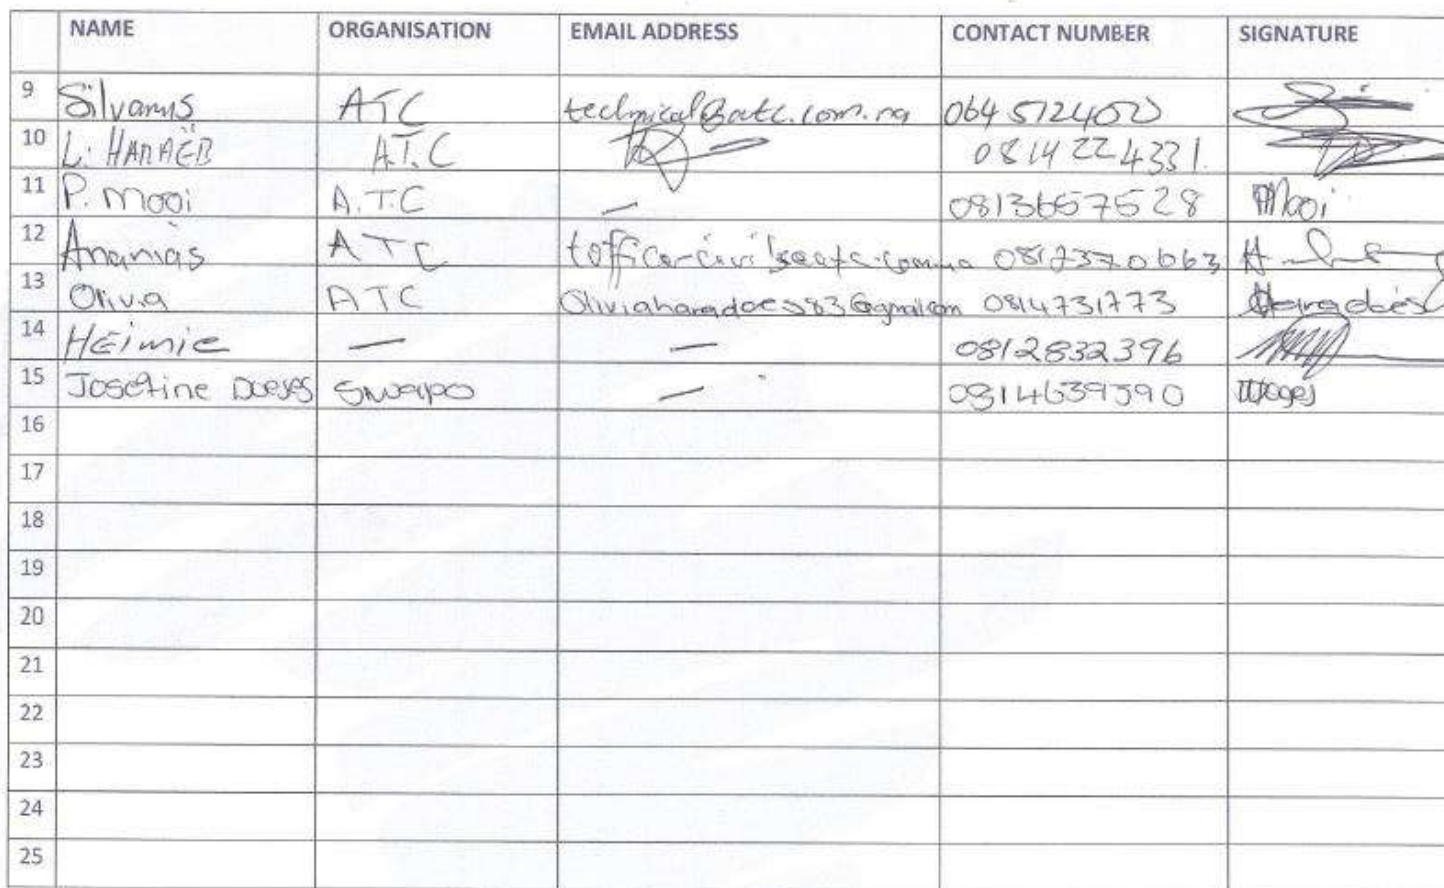 NAME ORGANISATION EMAIL ADDRESS CONTACT NUMBER SIGNATURE
9 Silvanus ATC technical@atc.com.na 064 512400
10 L. HANAËB A.T.C 0814224331.
11 P. Mooi A.T.C — 0813657528 PMooi
12 Ananias ATC 0812370663
13 Olivia ATC Oliviaharadoes83@gmail.com 0814731773
14 HEimie — — 0812832396
15 Josefine Doeses Swapo — 0814639590
16
17
18
19
20
21
22
23
24
25